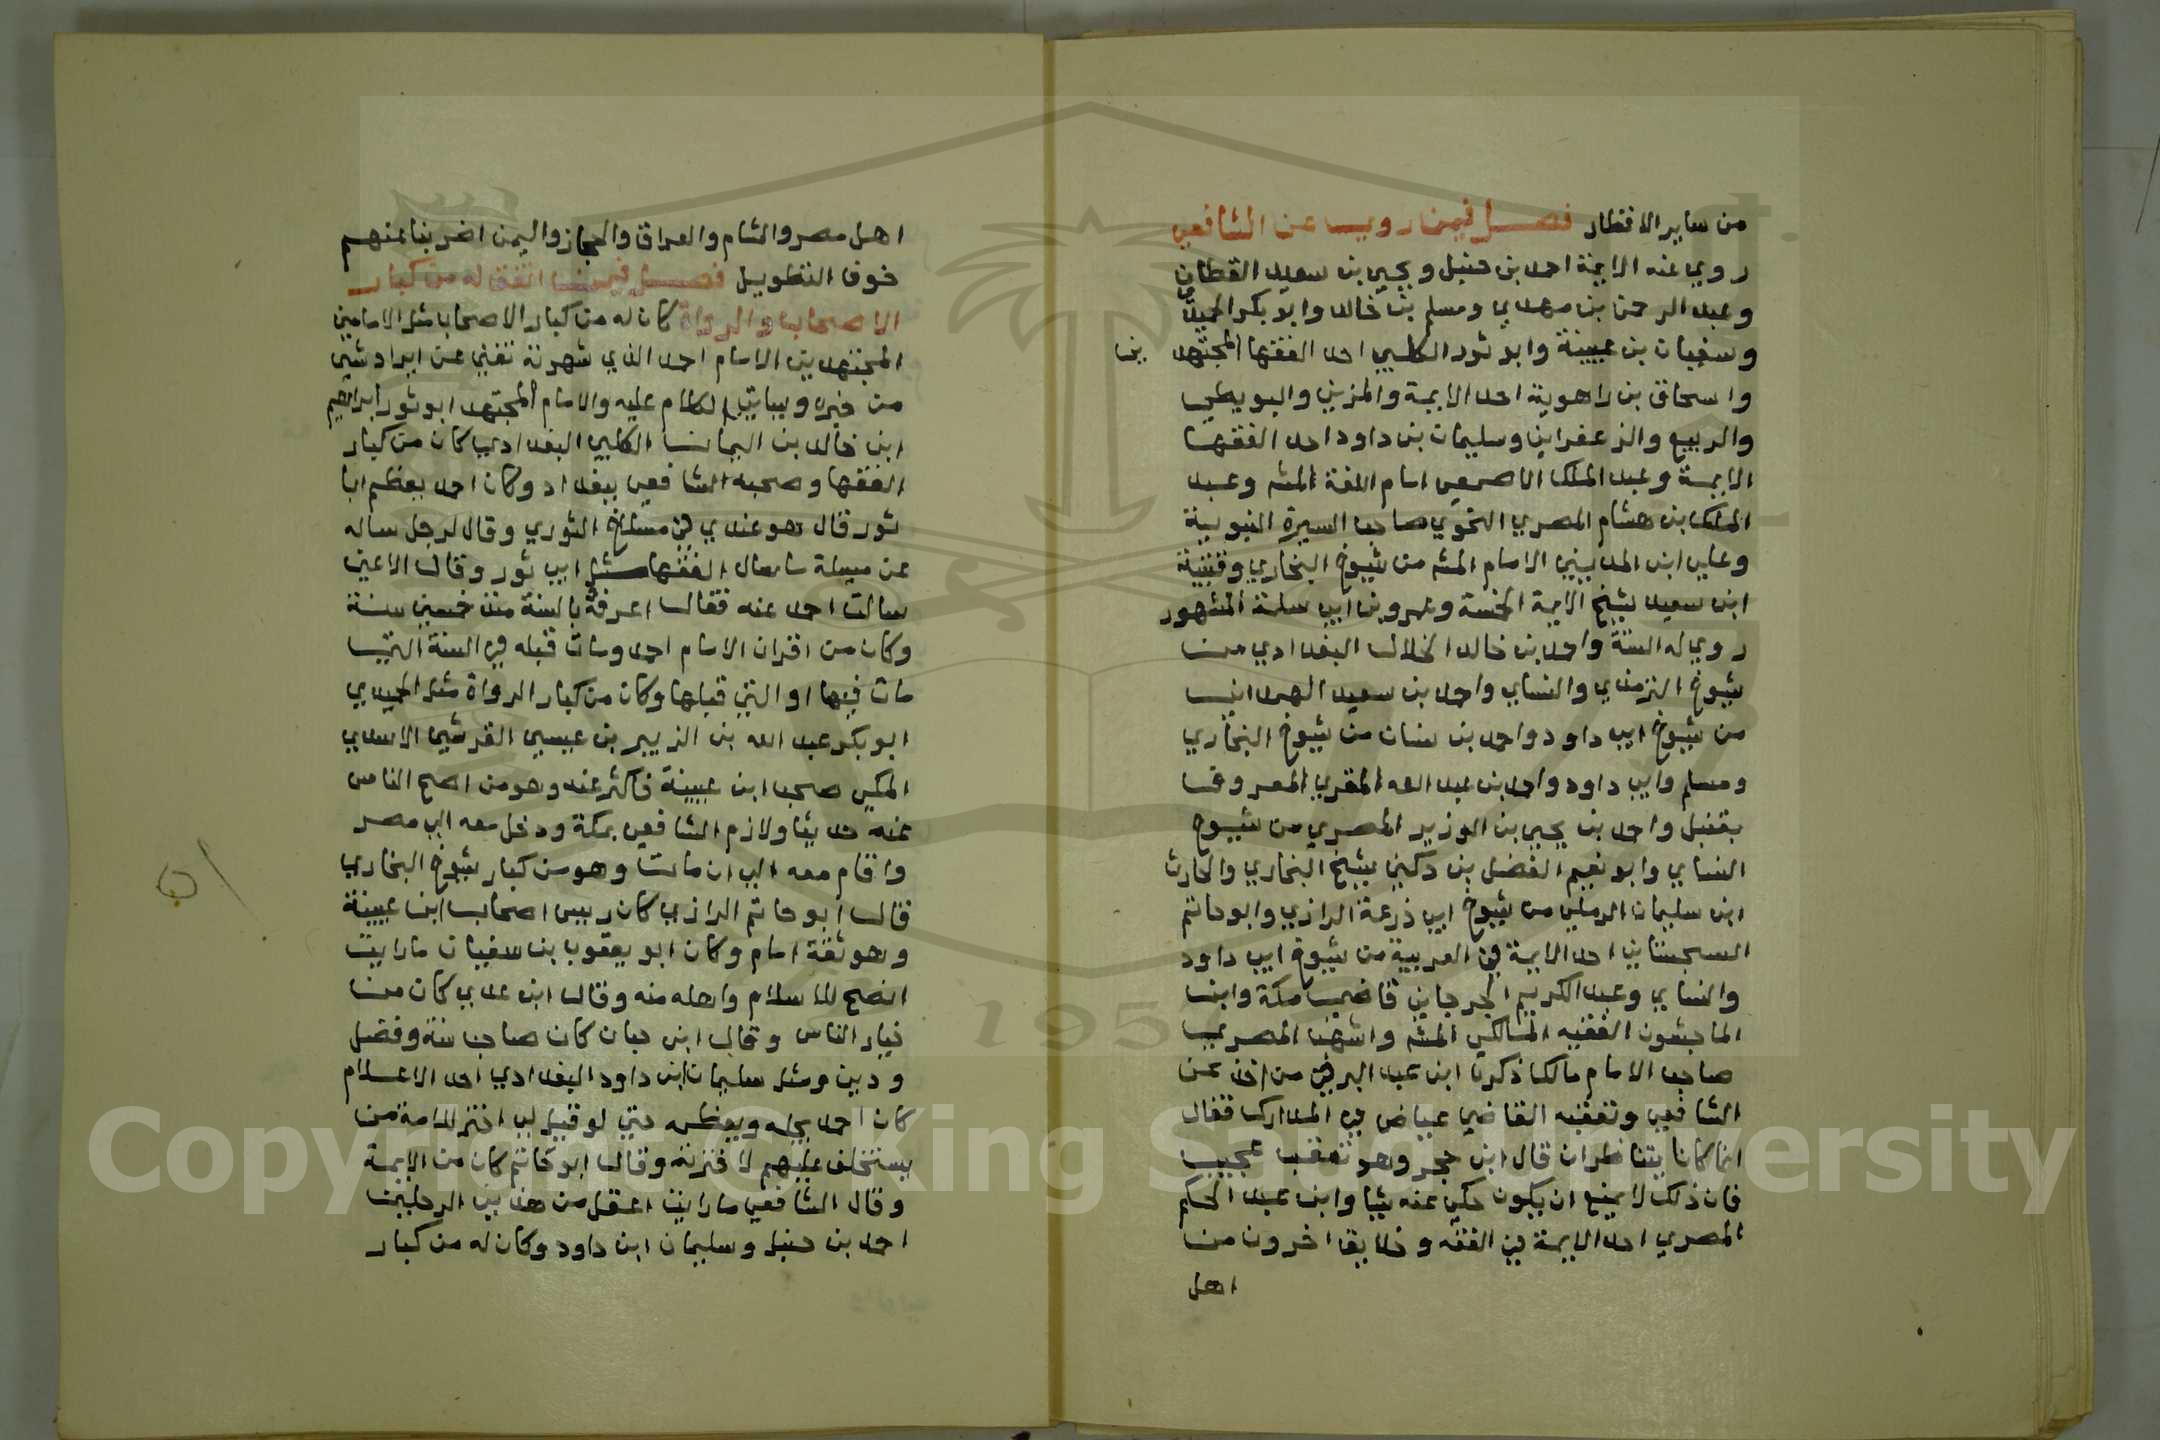 من ساير الاقطار فصل فيمن روي عن الشافعي
روي عنه الايمة احمد بن حنبل ويحيي بن سعيد القطان
وعبد الرحمن بن مهدي ومسلم بن خالد وابو بكر الحميدي
وسفيان بن عيينة وابو ثور الكلبي احد الفقها المجتهدين
واسحاق بن راهوية احد الايمة والمزني والبويطي
والربيع والزعفراني وسليمان بن داود احد الفقها
الايمة وعبد الملك الاصمعي امام اللغة المشه وعبد
الملك بن هشام المصري النحوي صاحب السيرة النبوية
وعلي ابن المديني الامام المشه من شيوخ البخاري وقتيبة
ابن سعيد شيخ الايمة الخمسة وعمرو بن ابي سلمة المشهور
روي له الستة واحمد بن خالد الخلال البغدادي من
شيوخ الترمذي والنساي واحمد بن سعيد الهمداني
من شيوخ ابي داود واحمد بن سنان من شيوخ البخاري
ومسلم وابي داود واحمد بن عبد الله المقري المعروف
بقنبل واحمد بن يحيي بن الوزير المصري من شيوخ
النساي وابو نعيم الفضل بن دكين شيخ البخاري والحارث
ابن سليمان الرملي من شيوخ ابي زرعة الرازي وابو حاتم
السجستاني احد الايمة في العربية من شيوخ ابي داود
والنساي وعبد الكريم الجرجاني قاضي مكة وابن
الماجشون الفقيه المالكي المشه واشهب المصري
صاحب الامام مالك ذكره ابن عبد البر في من اخذ عن
الشافعي وتعقبه القاضي عياض في المدارك فقال
انما كانا يتناظران قال ابن حجر وهو تعقب عجيب
فان ذلك لا يمنع ان يكون حكي عنه شيا وابن عبد الحكم
المصري احد الايمة في الفقه وخلايق اخرون من
اهل
اهل مصر والشام والعراق والحجاز واليمن اضربنا عنهم
خوف التطويل فصل فيمن اتفق له من كبار
الاصحاب والرواة كان له من كبار الاصحاب مثل الامامين
المجتهدين الامام احمد الذي شهرته تغني عن ايراد شي
من خبره وسياتي الكلام عليه والامام المجتهد ابو ثور ابراهيم
ابن خالد بن اليمان الكلبي البغدادي كان من كبار
الفقها وصحب الشافعي ببغداد وكان احمد يعظم ابا
ثور قال هو عندي في مسلاخ الثوري وقال لرجل ساله
عن مسيلة سل الفقها سل ابي ثور وقال الاعين
سالت احمد عنه فقال اعرفه بالسنة منذ خمسين سنة
وكان من اقران الامام احمد ومات قبله في السنة التي
مات فيها او التي قبلها وكان من كبار الرواة مثل الحميدي
ابو بكر عبد الله بن الزبير بن عيسي القرشي الاسدي
المكي صحب ابن عيينة فاكثر عنه وهو من اصح الناس
عنه حديثا ولازم الشافعي بمكة ودخل معه الي مصر
واقام معه الي ان مات وهو من كبار شيوخ البخاري
قال ابو حاتم الرازي كان رييس اصحاب ابن عيينة
وهو ثقة امام وكان ابو يعقوب بن سفيان ما رايت
انصح للاسلام واهله منه وقال ابن عدي كان من
خيار الناس وقال ابن حبان كان صاحب سنة وفضل
ودين ومثل سليمان ابن داود البغدادي احد الاعلام
كان احمد يجله ويعظمه حتي لو قيل لي اختر للامة من
يستخلف عليهم لاخترته وقال ابو حاتم كان من الايمة
وقال الشافعي ما رايت اعقل من هذين الرجلين
احمد بن حنبل وسليمان ابن داود وكان له من كبار
Copyright © King Saud University
1957